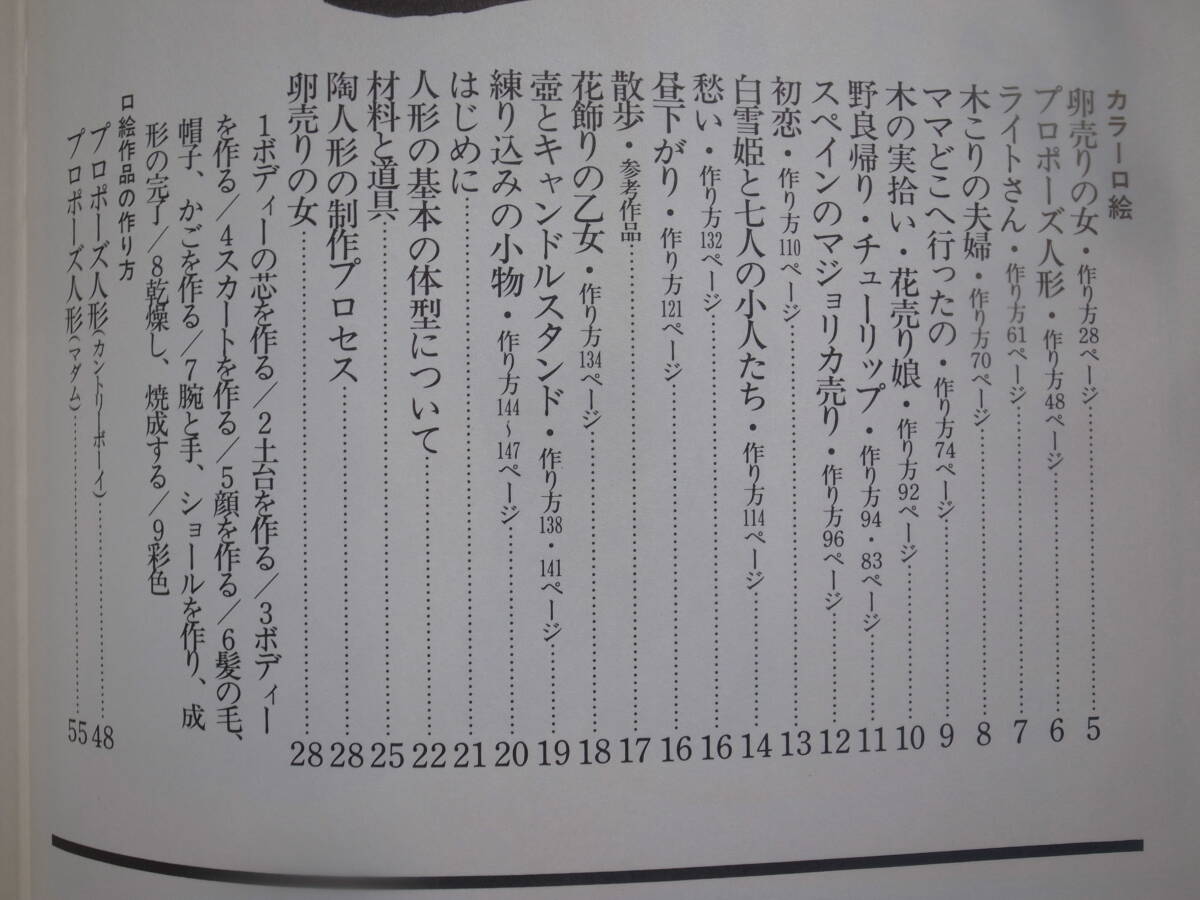 カラー口絵
卵売りの女・作り方28ページ……5
プロポーズ人形・作り方48ページ……6
ライトさん・作り方61ページ……7
木こりの夫婦・作り方70ページ……8
ママどこへ行ったの・作り方74ページ……9
木の実拾い・花売り娘・作り方92ページ……10
野良帰り・チューリップ・作り方94・83ページ……11
スペインのマジョリカ売り・作り方96ページ……12
初恋・作り方110ページ……13
白雪姫と七人の小人たち・作り方114ページ……14
愁い・作り方132ページ……16
昼下がり・作り方121ページ……16
散歩・参考作品……17
花飾りの乙女・作り方134ページ……18
壺とキャンドルスタンド・作り方138・141ページ……19
練り込みの小物・作り方144〜147ページ……20
はじめに……21
人形の基本の体型について……22
材料と道具……25
陶人形の制作プロセス……28
卵売りの女……28
1ボディーの芯を作る/2土台を作る/3ボディー
を作る/4スカートを作る/5顔を作る/6髪の毛、
帽子、かごを作る/7腕と手、ショールを作り、成
形の完了/8乾燥し、焼成する/9彩色
口絵作品の作り方
プロポーズ人形(カントリーボーイ)……48
プロポーズ人形(マダム)……55